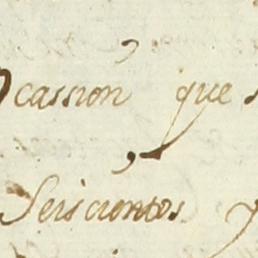 Ocassion que
Seiscientos y